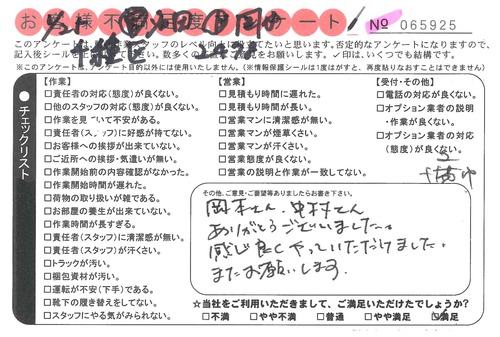 お客様不満足度アンケート
№ 065925
このアンケートは、作業スタッフのレベル向上に役立てたいと思います。否定的なアンケートになりますので、
記入後シールを
✓印は、いくつでも結構です。
※このアンケートは、アンケート目的以外には使用いたしません。（※情報保護シールは1度はがすと、再度貼りなおすことはできません）
チェックリスト
【作業】
□責任者の対応（態度）が良くない。
□他のスタッフの対応（態度）が良くない。
□作業を見ていて不安がある。
□責任者（スタッフ）に好感が持てない。
□お客様への挨拶が出来ていない。
□ご近所への挨拶・気遣いが無い。
□作業開始前の内容確認がなかった。
□作業開始時間が遅れた。
□荷物の取り扱いが雑である。
□お部屋の養生が出来ていない。
□作業時間が長すぎる。
□責任者（スタッフ）に清潔感が無い。
□責任者（スタッフ）が汗くさい。
□トラックが汚い。
□梱包資材が汚い。
□運転が不安（下手）である。
□靴下の履き替えをしてない。
□スタッフにやる気がみられない。
【営業】
□見積もり時間に遅れた。
□見積もり時間が長い。
□営業マンに清潔感が無い。
□営業マンが煙草くさい。
□営業マンが汗くさい。
□営業態度が良くない。
□営業の説明と作業が一致してない。
【受付・その他】
□電話の対応が良くない。
□オプション業者の説明
・作業が良くない。
□オプション業者の対応
（態度）が良くない。
その他、ご意見・ご要望等ありましたらお書き下さい。
岡本さん、中村さん
ありがとうございました。
感じ良くやっていただけました。
またお願いします。
☆当社をご利用いただきまして、ご満足いただけたでしょうか？
□不満 □やや不満 □普通 □やや満足 ☑満足